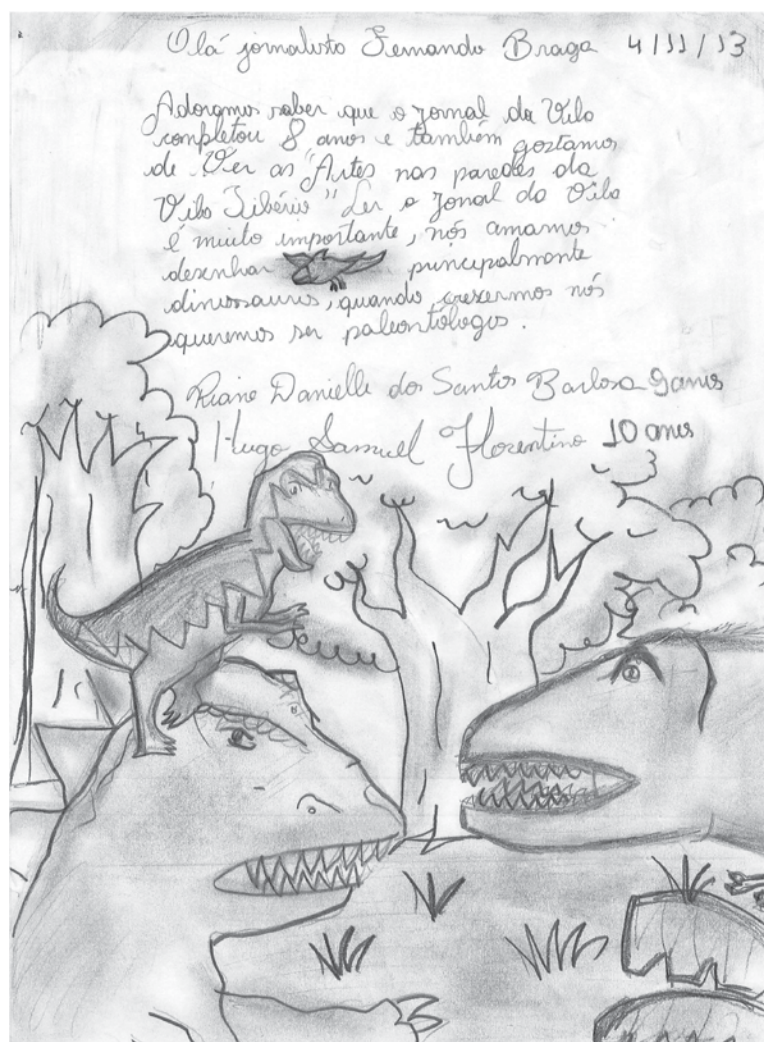 Olá jornalisto Fernando Braga 4/11/13
Adoramos saber que o jornal da Vila
conpletou 8 anos e também gostamos
de Ver as "Artes nas paredes da
Vila Tibério" Ler o Jonal da Vila
é muito importante, nós amamos
desenhar principalmente
dinossauros, quando crexermos nós
queremos ser paleontólogos.
Riano Danielle dos Santos Barbosa 9 anos
Hugo Samuel Florentino 10 anos